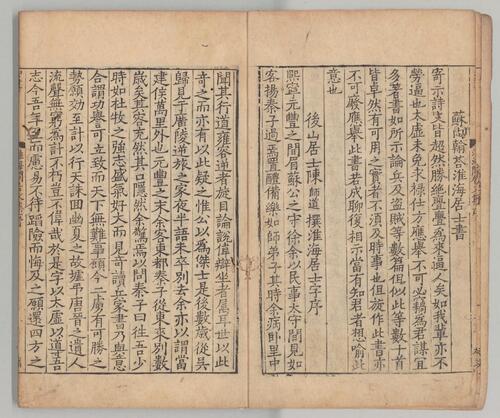 蘇內翰荅淮海居士書
寄示詩文皆超然勝絶亹亹焉來逼人矣如我輩亦不
勞逼也太虛未免求祿仕方應舉不可必竊爲君謀宜
多著書如所示論兵及盜賊等數篇但似此等數十首
皆卓然有可用之實者不須及時事也但旋作此書亦
不可廢應舉此書若成聊復相示當有知君者想喻此
意也
後山居士陳師道撰淮海居士字序
熙寧元豐之間眉蘇公之守徐余以民事太守間見如
客揚秦子過焉置醴備樂如師弟子其時余病卧里中
聞其行道雍容逆者旋目論說偉辯坐者屬耳世以此
奇之而亦有以此疑之惟公以爲傑士是後數歲從吳
歸見于廣陵逆旅之家夜半語未卒別去余亦以謂當
建侯萬里外也元豐之末余客東都秦子從東來別數
歲矣其容充然其口隱然余驚焉以問秦子曰往吾少
時如杜牧之強志盛氣好大而見奇讀兵家書乃與意
合謂功譽可立致而天下無難事顧今二虜有可勝之
勢願効至計以行天誅囬幽夏之故墟弔唐晉之遺人
流聲無窮爲計不朽豈不偉哉於是字以太虛以道吾
志今吾年至而慮易不待蹈險而悔及之願還四方之